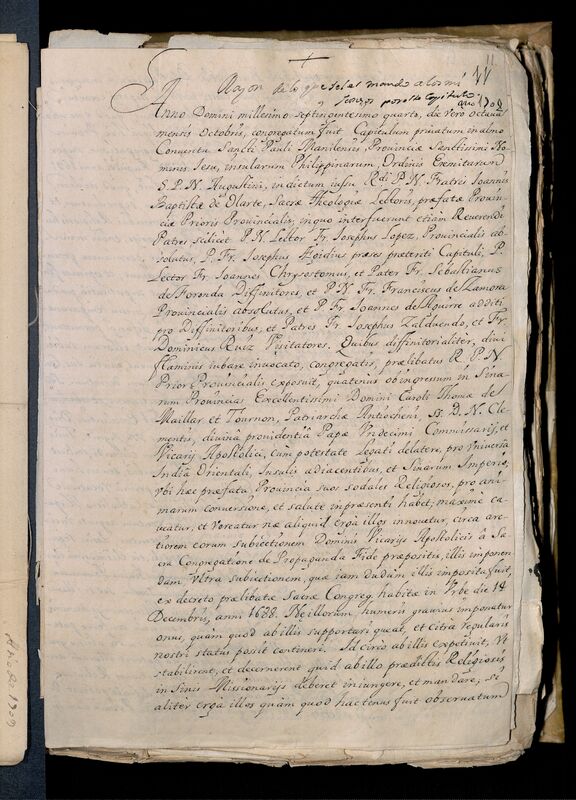 Razon de lo que se les mando a los mi
sioneros por este Capitulo
año 1704
Anno Domini millesimo septingintesimo quarto, die vero octava
mensis Octobris, congregatum fuit Capitulum privatum in almo
Conventu Sancti Pauli Manilensis, Provinciæ Sanctissimi No
minis Jesu, insularum Philippinarum, Ordinis Eremitarum
S. P. N. Augustini, indictum iussu Rdi P. N. Fratris Joannis
Baptistæ de Olarte, Sacræ Theologiæ Lectoris, præfatæ Provin-
ciæ Prioris Provincialis, in quo interfuerunt etiam Reverendi
Patres scilicet P. N. Lector Fr. Josephus Lopez, Provincialis ab-
solutus, P. Fr. Josephus Ægidius præses præteriti Capituli, P.
Lector Fr. Joannes Chrysostomus, et Pater Fr. Sebastianus
de Foronda Diffinitores, et P. N. Fr. Franciscus de Zamora
Provincialis absolutus, et P. Fr. Joannes de Aguirre additi
pro Diffinitoribus, et Patres Fr. Josephus Zalduendo, et Fr.
Dominicus Ruiz Visitatores. Quibus diffinitorialiter, divi
flaminis iubare invocato, congregatis, prælibatus R. P. N
Prior Provincialis exposuit, quatenus ob ingressum in Sina-
rum Provincias Excellentissimi Domini Caroli Thomæ de
Maillar et Tournon, Patriarchæ Antiocheni, SS. D. N. Cle-
mentis, divina providentia Papæ Undecimi Commissarij, et
Vicarij Apostolici, cum potestate Legati de latere, pro universa
India Orientali, Insulis adiacentibus, et Sinarum Imperio,
ubi hæc præfata Provincia suos sodales Religiosos, pro ani-
marum conversione, et salute inpræsenti habet; maximè ca-
veatur, et vereatur næ aliquid ergà illos innovetur, circa arc-
tiorem eorum subiectionem Dominis Vicarijs Apostolicis à Sa
cra Congregatione de Propaganda Fide præpositis, illis imponen
dam ultra subiectionem, quæ iam dudum illis imposita fuit,
ex decreto prælibatæ Sacræ Congreg. habitæ in Urbe die 18
Decembris, anni 1688. Ne illorum humeris gravius imponatur
onus, quam quod ab illis supportari queat, et citra regularis
nostri status possit contineri. Id circo ab illis expetivit, Ut
stabilirent, et decernerent quid ab illo prædictis Religiosis
in Sinis Missionarijs deberet iniungere, et mandare; si
aliter erga illos quam quod hactenus fuit observatum
Año de 1704